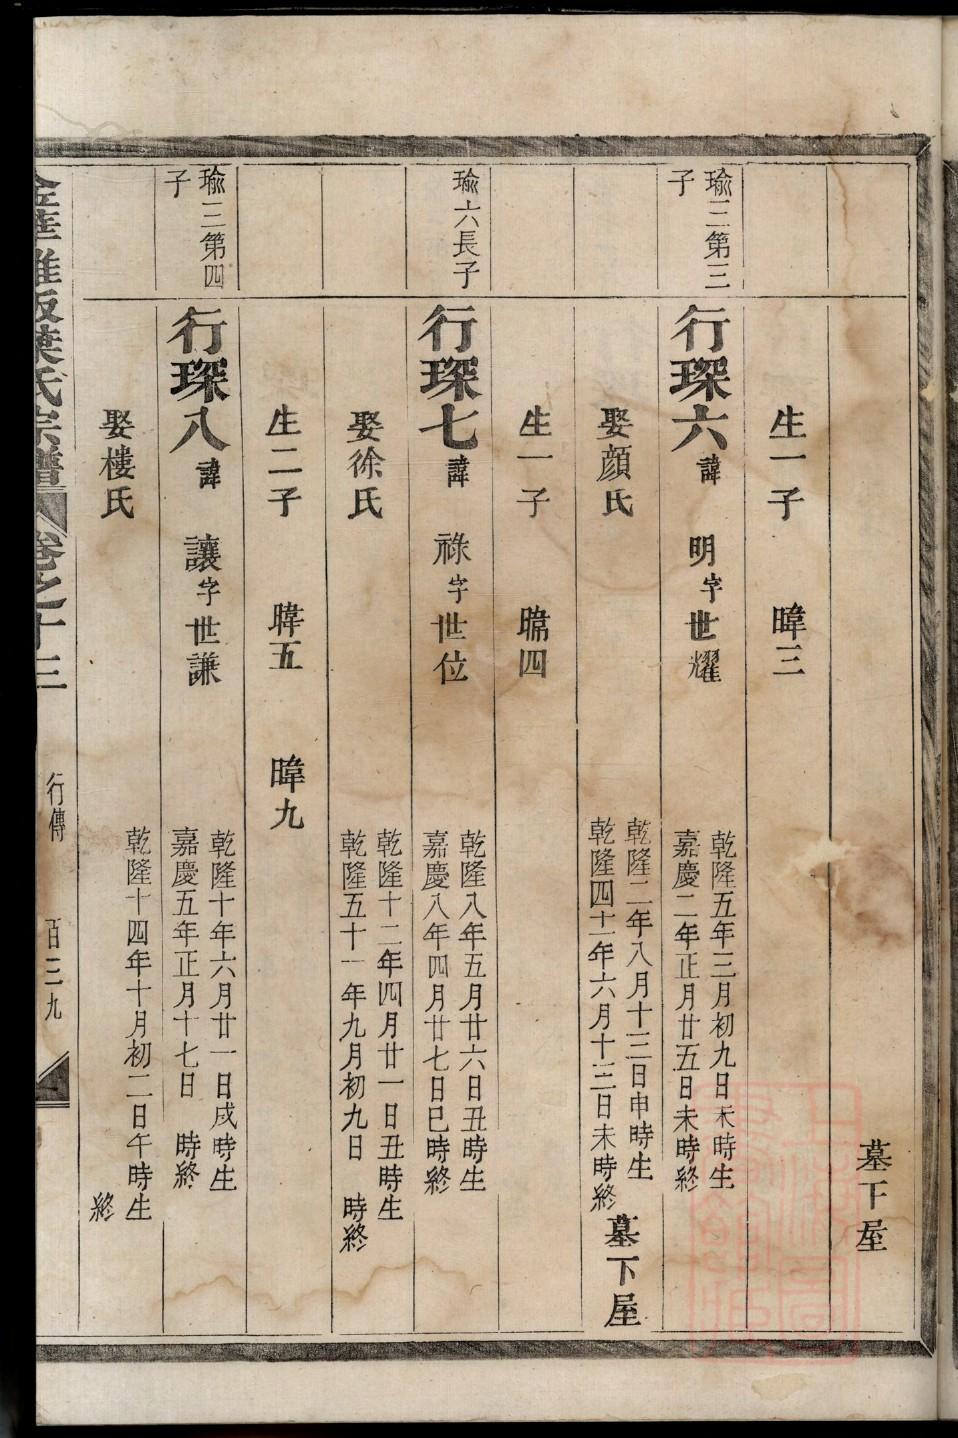 墓下屋
生一子 暐三
瑜三第三子
行琛六 諱 明 字 世耀
乾隆五年三月初九日未時生
嘉慶二年正月廿五日未時終
娶顔氏
乾隆二年八月十三日申時生
乾隆四十一年六月十三日未時終
墓下屋
生一子 暐四
瑜六長子
行琛七 諱 祿 字 世位
乾隆八年五月廿六日丑時生
嘉慶八年四月廿七日巳時終
娶徐氏
乾隆十二年四月廿一日丑時生
乾隆五十一年九月初九日 時終
生二子 暐五 暐九
瑜三第四子
行琛八 諱 讓 字 世謙
乾隆十年六月廿一日戌時生
嘉慶五年正月十七日 時終
娶樓氏
乾隆十四年十月初二日午時生
終
金華雅畈葉氏宗譜 卷之十三 行傳 百三九